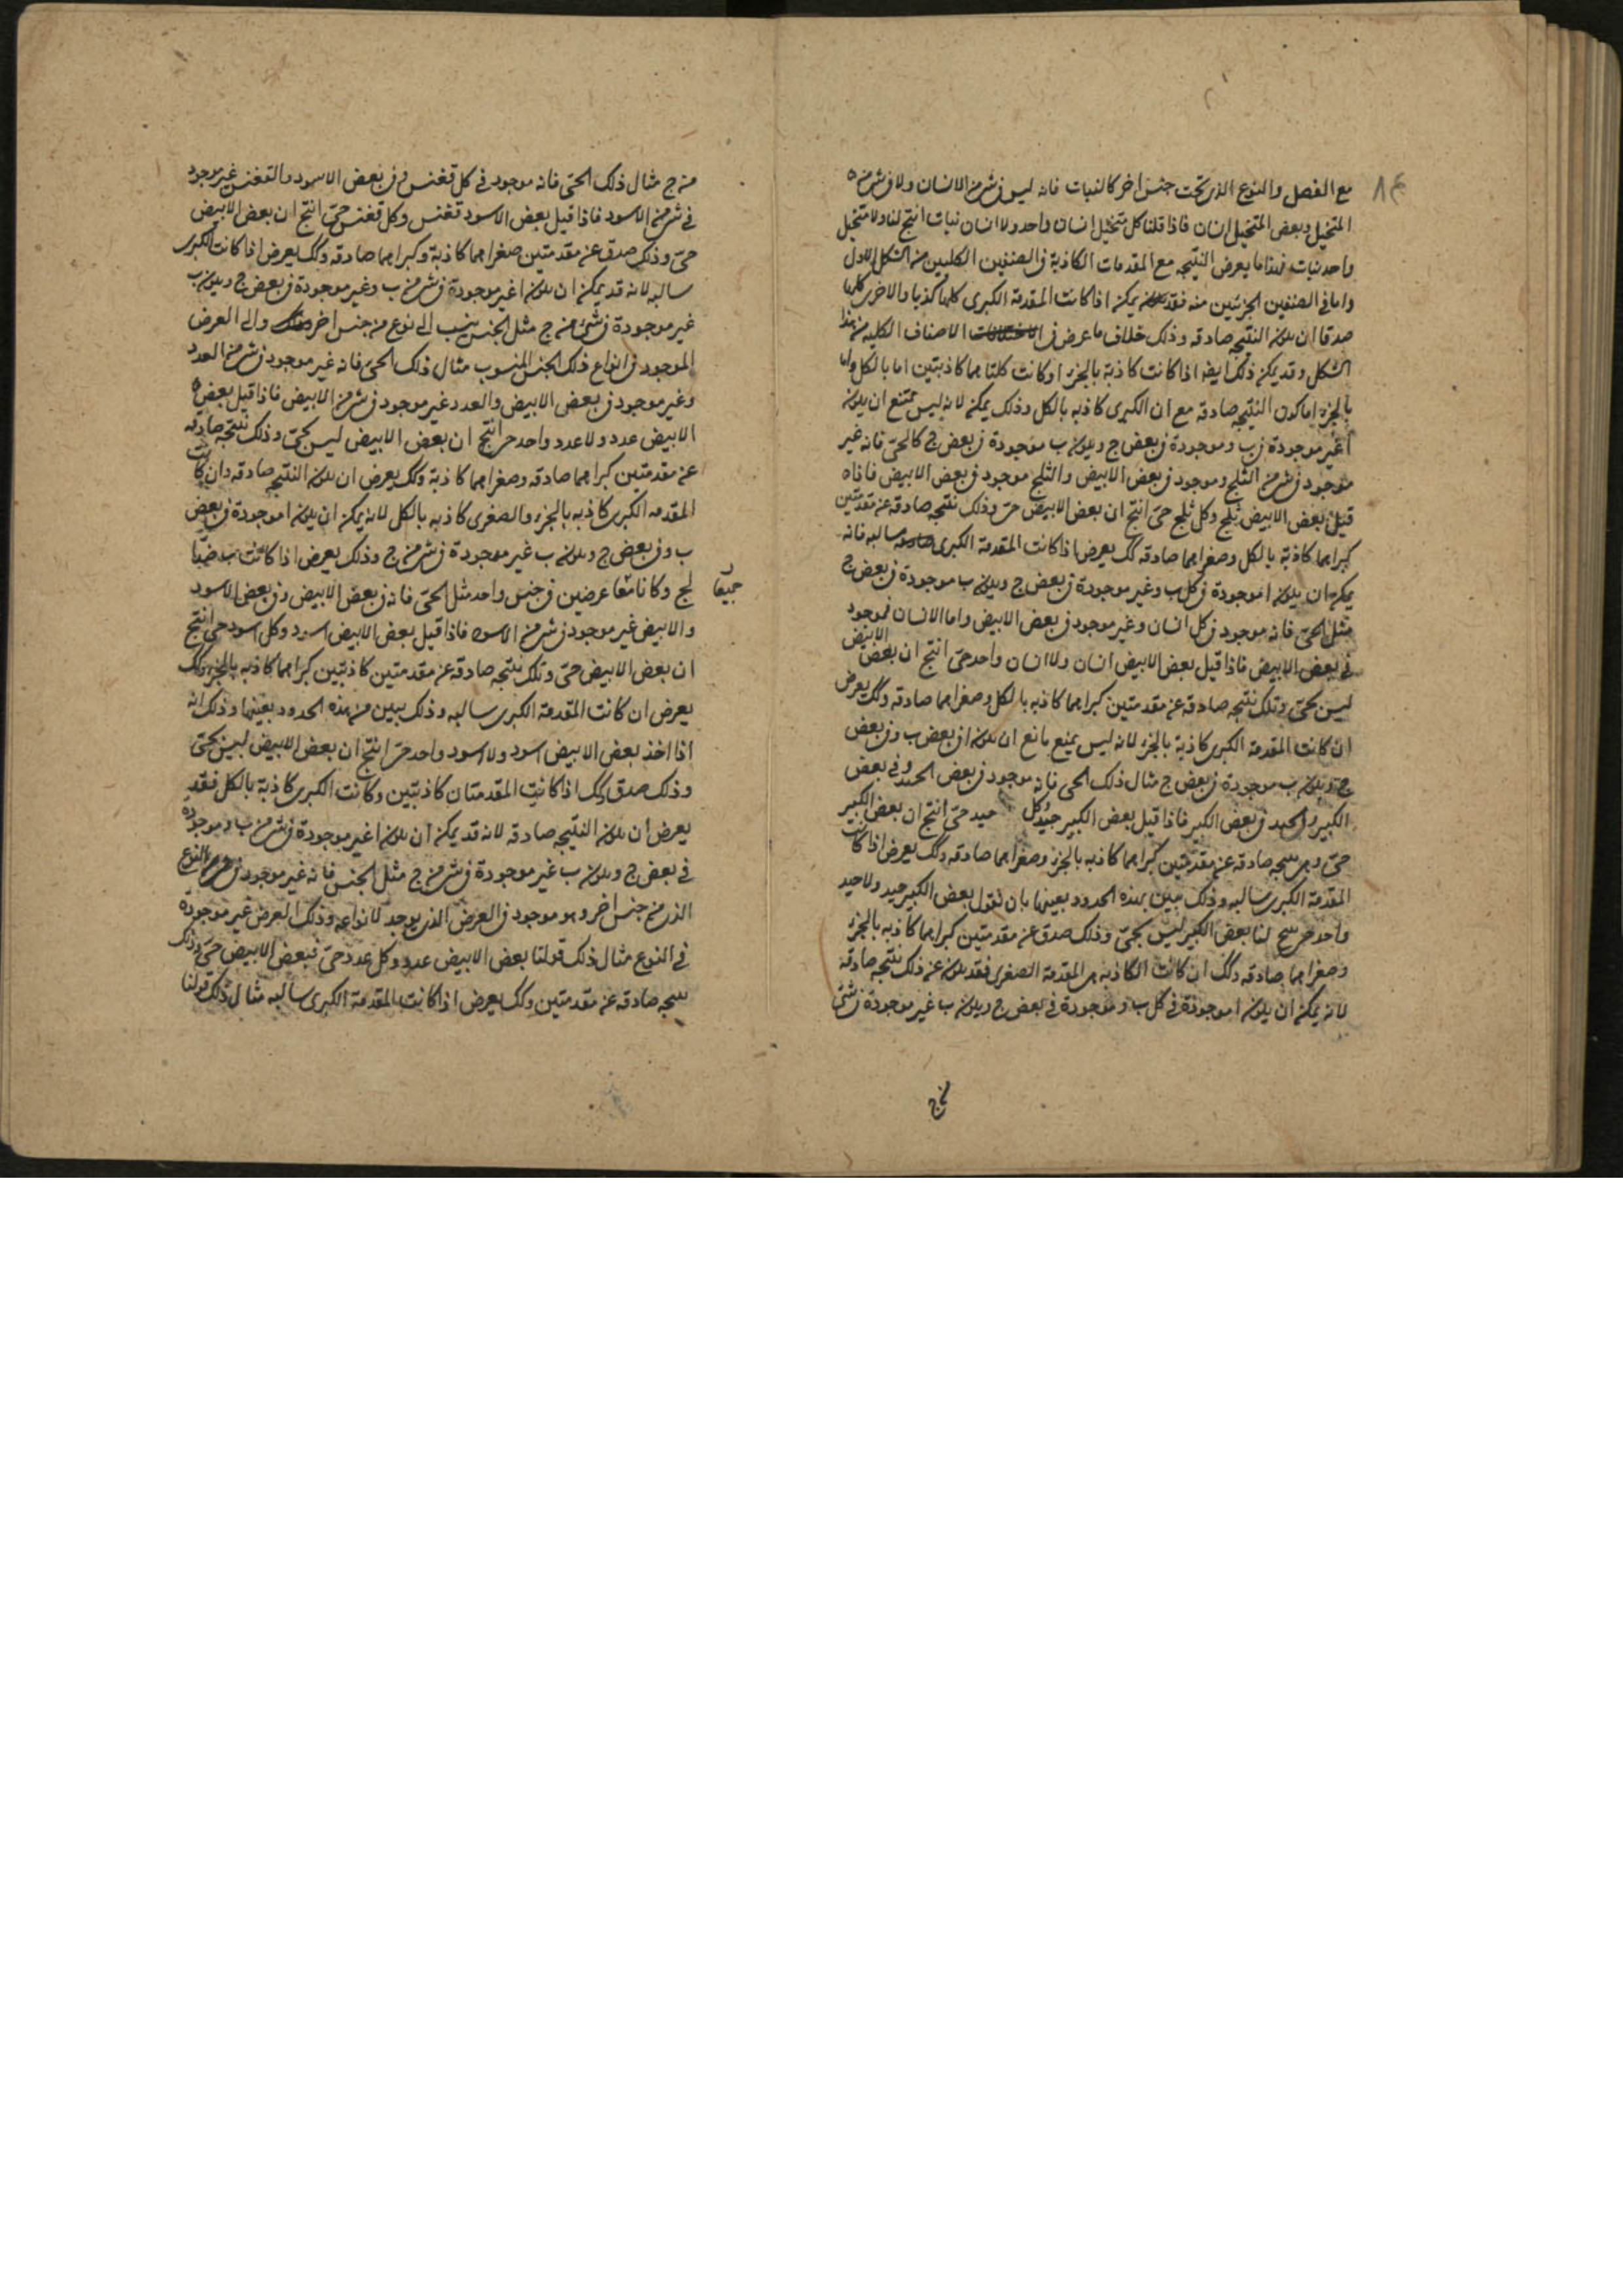 ٨٤
مع الفصل والنوع الذى تحت جنس اخر كالنبات فانه ليس فى شى من الانسان ولا فى شى من
المتخيل وبعض المتخيل انسان فاذا قلنا كل متخيل انسان واحد ولا انسان نبات انتج لنا ولا متخيل
واحد نبات فهذا ما يعرض النتيجه مع المقدمات الكاذبة فى الصنفين الكليين من الشكل الاول
واما فى الصنفين الجزئيين منه فقد يمكن اذا كانت المقدمة الكبرى كلها كذبا والاخرى كلها
صدقا ان يكون النتيجه صادقه وذلك خلاف ما عرض فى الاصناف الكليه من هذا
الشكل وقد يمكن ذلك ايضه اذا كانت كاذبة بالجزء او كانت كلتاهما كاذبتين اما بالكل واما
بالجزء اما كون النتيجه صادقه مع ان الكبرى كاذبه بالكل وذلك يمكن لانه ليس ممتنع ان يكون
ا غير موجودة فى ب وموجودة فى بعض ج ويكون ب موجودة فى بعض ج كالحى فانه غير
موجود فى شى من الثلج وموجود فى بعض الابيض والثلج موجود فى بعض الابيض فاذا
قيل بعض الابيض ثلج وكل ثلج حى انتج ان بعض الابيض حى وذلك نتيجه صادقه عن مقدمتين
كبراهما كاذبة بالكل وصغراهما صادقه كك يعرض اذا كانت المقدمة الكبرى سالبه فانه
يمكن ان يكون ا موجودة فى كل ب وغير موجودة فى بعض ج ويكون ب موجودة فى بعض ج
مثل الحى فانه موجود فى كل انسان وغير موجود فى بعض الابيض واما الانسان فموجود
فى بعض الابيض فاذا قيل بعض الابيض انسان ولا انسان واحد حى انتج ان بعض الابيض
ليس بحى وتلك نتيجه صادقه عن مقدمتين كبراهما كاذبه بالكل وصغراهما صادقه وكك يعرض
ان كانت المقدمة الكبرى كاذبة بالجزء لانه ليس يمنع مانع ان يكون ا فى بعض ب وفى بعض
ج ويكون ب موجودة فى بعض ج مثال ذلك الحى فانه موجود فى بعض الجيد وفى بعض
الكبير والجيد فى بعض الكبير فاذا قيل بعض الكبير جيد وكل جيد حى انتج ان بعض الكبير
حى وهى نتيجه صادقه عن مقدمتين كبراهما كاذبه بالجزء وصغراهما صادقه وكك يعرض اذا كانت
المقدمة الكبرى سالبه وذلك يبين بهذه الحدود بعينها بان نقول بعض الكبير جيد ولا جيد
واحد حى ينتج لنا بعض الكبير ليس بحى وذلك صدق عن مقدمتين كبراهما كاذبه بالجزء
وصغراهما صادقه وكك ان كانت الكاذبه هى المقدمة الصغرى فقد يكون عن ذلك نتيجه صادقة
لانه يمكن ان يكون ا موجودة فى كل ب وموجودة فى بعض ج ويكون ب غير موجودة فى شئ
من ج
من ج مثال ذلك الحى فانه موجود فى كل قفنس وفى بعض الاسود والقفنس غير موجود
فى شى من الاسود فاذا قيل بعض الاسود قفنس وكل قفنس حى انتج ان بعض الابيض
حى وذلك صدق عن مقدمتين صغراهما كاذبة وكبراهما صادقه وكك يعرض اذا كانت الكبرى
سالبه لانه قد يمكن ان يكون ا غير موجودة فى شى من ب وغير موجودة فى بعض ج ويكون ب
غير موجودة فى شئ من ج مثل الجنس ينسب الى نوع من جنس اخر والى العرض
الموجود فى انواع ذلك الجنس المنسوب مثال ذلك الحى فانه غير موجود فى شى من العدد
وغير موجود فى بعض الابيض والعدد غير موجود فى شى من الابيض فاذا قيل بعض
الابيض عدد ولا عدد واحد حى انتج ان بعض الابيض ليس بحى وذلك نتيجه صادقه
عن مقدمتين كبراهما صادقه وصغراهما كاذبة وكك يعرض ان يكون النتيجه صادقه وان كانت
المقدمه الكبرى كاذبه بالجزء والصغرى كاذبه بالكل لانه يمكن ان يكون ا موجودة فى بعض
ب وفى بعض ج ويكون ب غير موجودة فى شى من ج وذلك يعرض اذا كانت ب ضدا
جميعا
لج وكانا معا عرضين فى جنس واحد مثل الحى فانه فى بعض الابيض وفى بعض الاسود
والابيض غير موجود فى شى من الاسود فاذا قيل بعض الابيض اسود وكل اسود حى انتج
ان بعض الابيض حى وتلك نتيجه صادقه عن مقدمتين كاذبتين كبراهما كاذبه بالجزء وكك
يعرض ان كانت المقدمة الكبرى سالبه وذلك يبين من هذه الحدود بعينها وذلك انه
اذا اخذ بعض الابيض اسود ولا اسود واحد حى انتج ان بعض الابيض ليس بحى
وذلك صدق وكك اذا كانت المقدمتان كاذبتين وكانت الكبرى كاذبة بالكل فقد
يعرض ان يكون النتيجه صادقه لانه قد يمكن ان يكون ا غير موجودة فى شى من ب وموجودة
فى بعض ج ويكون ب غير موجودة فى شى من ج مثل الجنس فانه غير موجود فى النوع
الذى من جنس اخر وهو موجود فى العرض الذى يوجد لانواعه وذلك العرض غير موجودة
فى النوع مثال ذلك قولنا بعض الابيض عدد وكل عدد حى فبعض الابيض حى وذلك
نتيجه صادقه عن مقدمتين وكك يعرض اذا كانت المقدمة الكبرى سالبه مثال ذلك قولنا